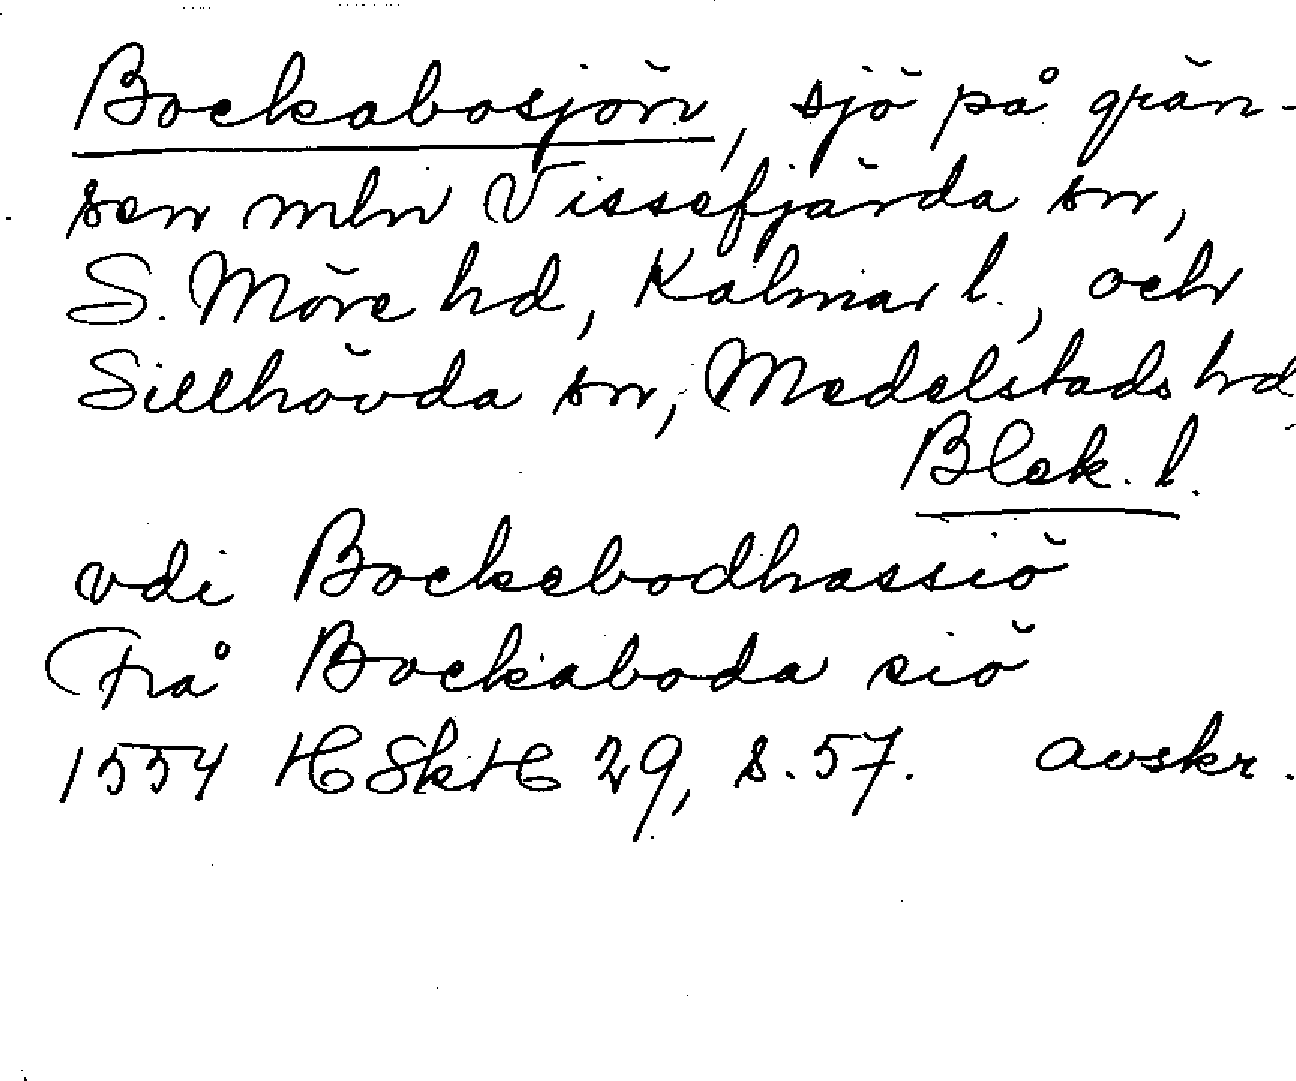 Bockabosjön, sjö på grän-
sen mln Vissefjärda sn,
S. Möre hd, Kalmar l., och
Sillhövda sn, Medelstads hd,
Blek. l.
vdi Bockebodhassiö
Frå Bockaboda siö
1554 HSkH 29, s. 57. avskr.